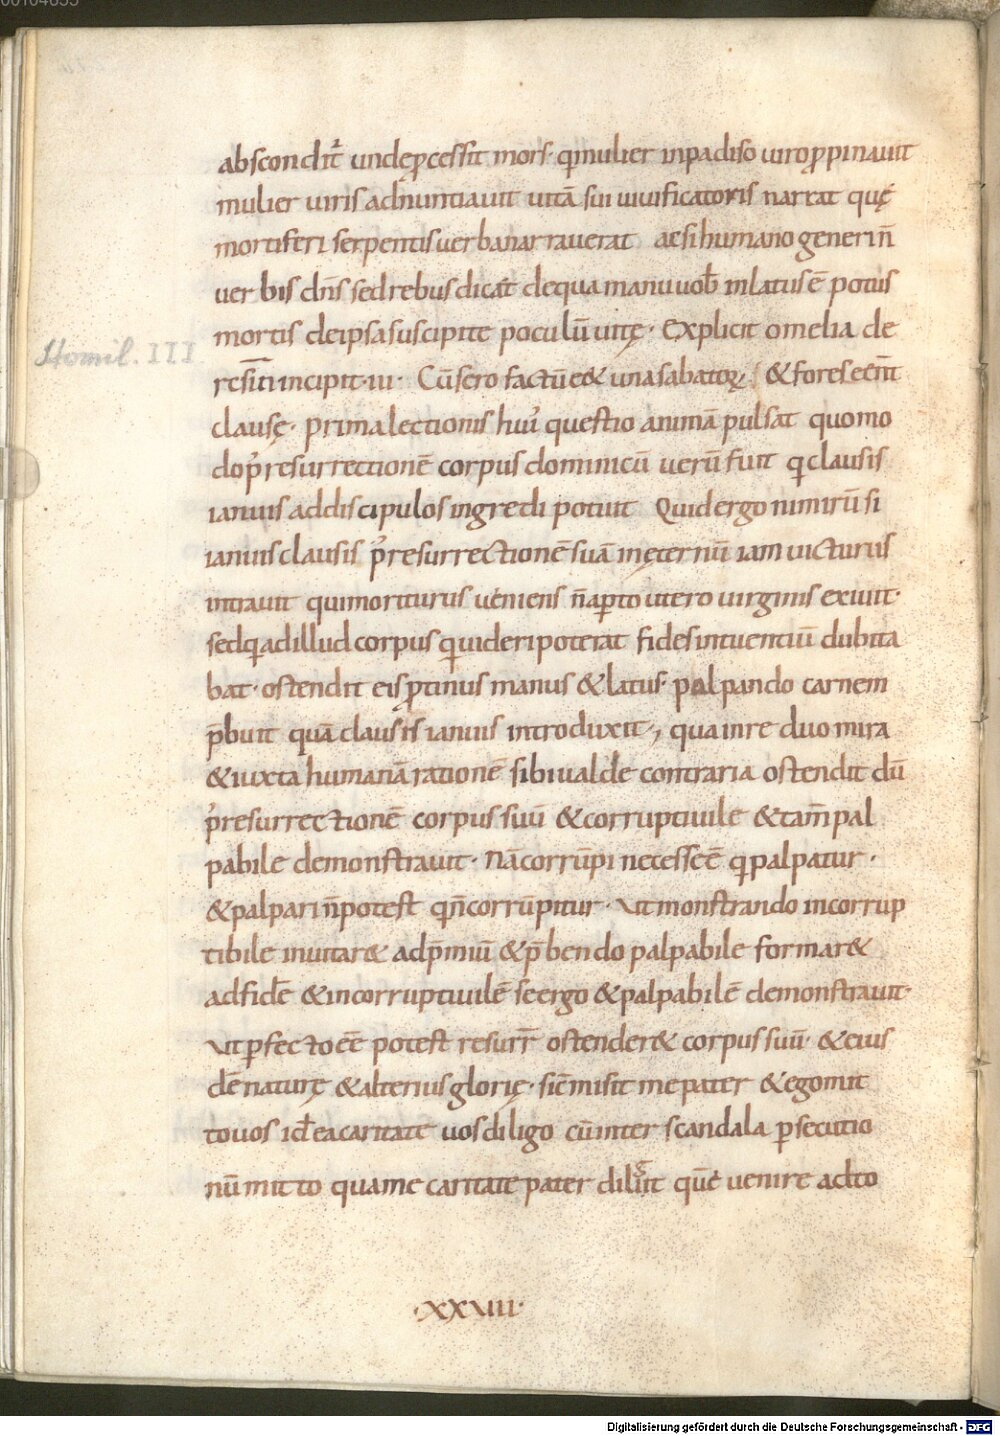 00104655
abscondit᷒ unde ꝓcessit mors· q̄ mulier inpadiso uiro ꝓpinauit
mulier uiris adnuntiauit uitā sui uiuificatoris narrat quę
mortiferi serpentis uerba narrauerat ac si humano generi n̄
uerbis dn̄s sed rebus dicat dequa manu uob̄ inlatus ē potus
mortis deipsa suscipite poculū uitę· Explicit omelia de
Homil. III
incipit·iii· Cū sero factū e& una sabatoꝝ / & fores eēnt
clausę· prima lectionis hui᷒ questio animā pulsat quomo
do p᷒ resurrectionē corpus dominicū uerū fuit q̄ clausis
ianuis ad discipulos ingredi potuit Quid ergo nimirū si
ianuis clausis p᷒ resurrectionē suā in ęternū iam uicturus
intrauit qui moriturus ueniens n̄ aꝑto utero uirginis exiuit·
sed q̄ ad illud corpus q̄ uideri poterat fides intuentiū dubita
bat· ostendit eis ꝓtinus manus & latus· palpando carnem
p̄buit quā clausis ianuis introduxit·, qua in re duo mira
& iuxta humanā rationē sibi ualde contraria ostendit dū
p᷒ resurrectionē corpus suū & corruptiuile & tam̄ pal
pabile demonstrauit· Nā corrūpi necesse ē q̄ palpatur·
& palpari n̄ potest q̄ n̄ corrūpitur· Vt monstrando incorrup
tibile inuitar& ad p̄miū & p̄bendo palpabile formar&
ad fidē & incorruptiuilē se ergo & palpabilē demonstrauit·
Vt ꝓfecto eē potest resurr̄ ostender& corpus suū· & eius
dē naturę & alterius glorię· sic̄ misit me pater & ego mit
to uos id ea caritate uos diligo cū inter scandala ꝑsecutio
nū mitto qua me caritate pater dilig̊it quē uenire ad to
·XXVIII·
Digitalisierung gefördert durch die Deutsche Forschungsgemeinschaft - DFG